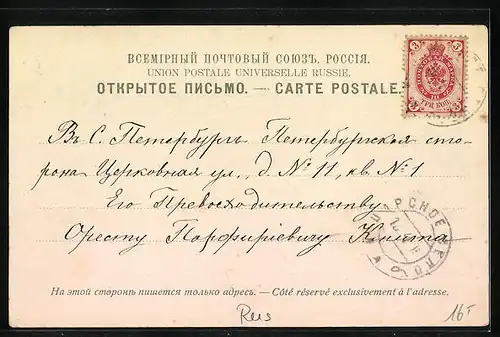 ВСЕМІРНЫЙ ПОЧТОВЫЙ СОЮЗЪ. РОССІЯ.
UNION POSTALE UNIVERSELLE RUSSIE.
ОТКРЫТОЕ ПИСЬМО. — CARTE POSTALE.
3 3
ТРИ КОП.
Въ С. Петербургъ Петербургская сто-
рона Церковная ул., д. № 11, кв. № 1
Его Превосходительству
Оресту Порфирьевичу
ЦАРСКОЕ СЕЛО
На этой сторонѣ пишется только адресъ. — Côté réservé exclusivement à l'adresse.
Rus
16